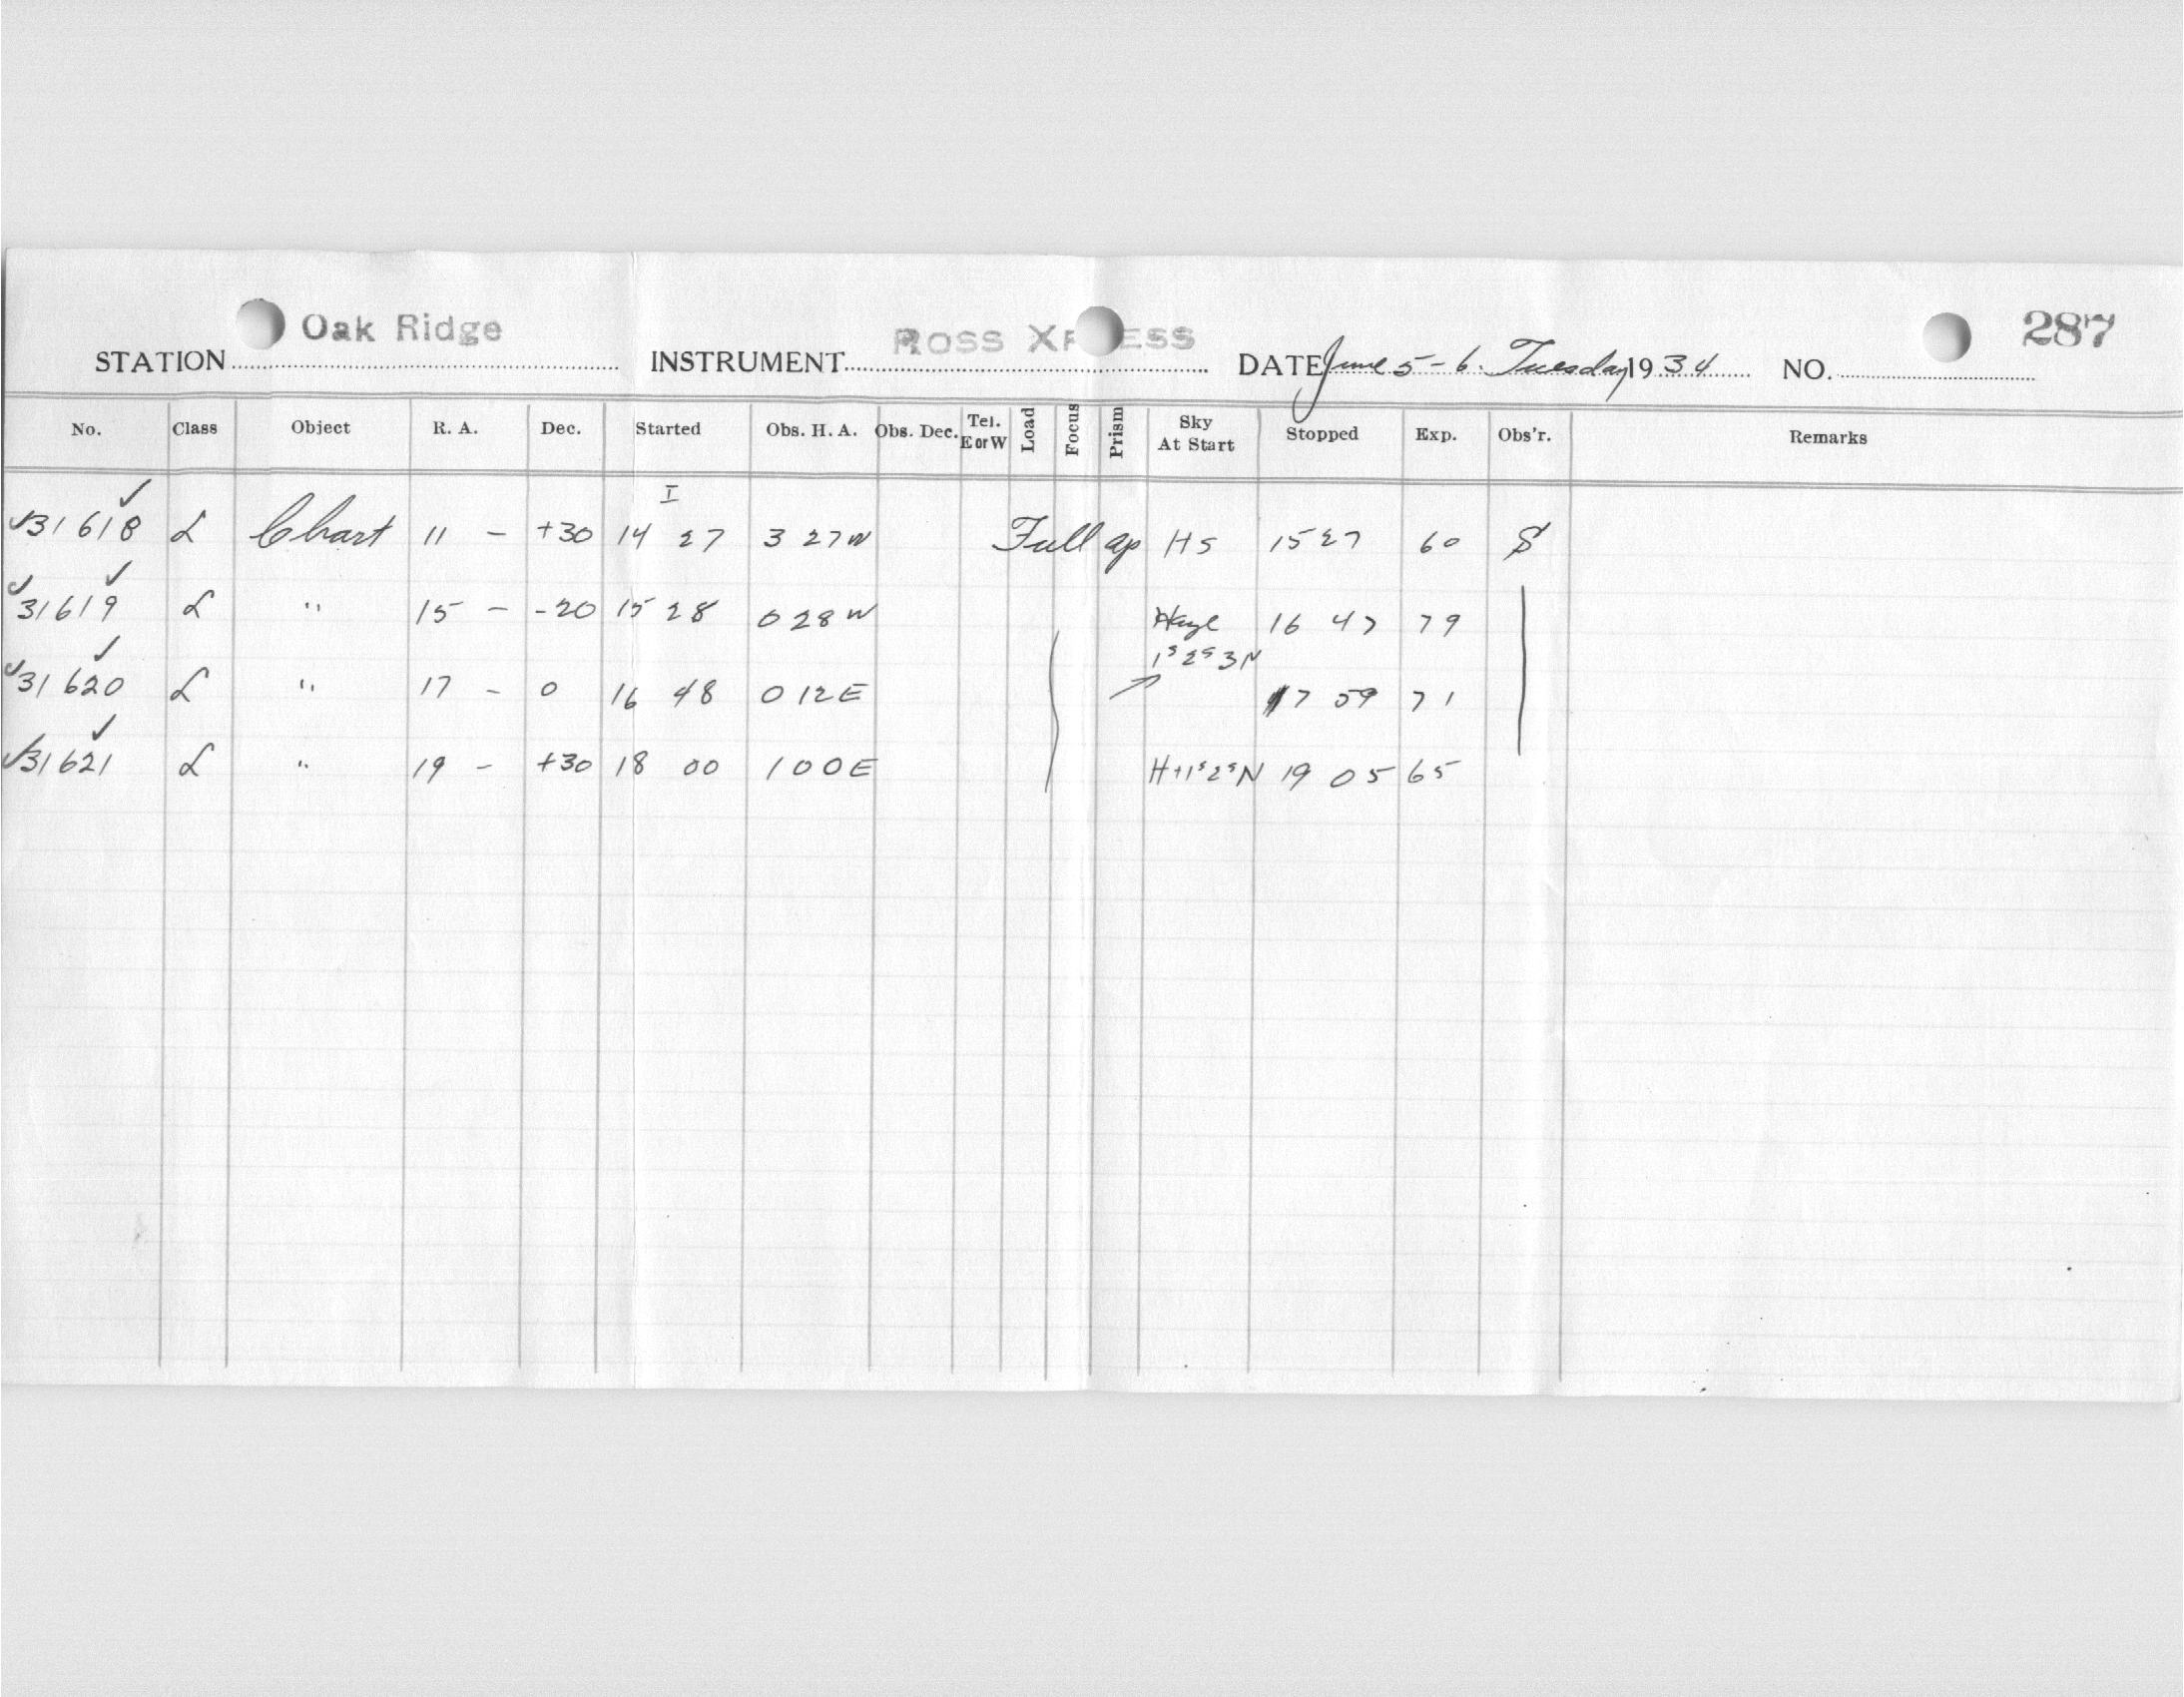 Oak Ridge ROSS XPRESS 287
STATION INSTRUMENT DATE June 5-6. Tuesday 1934 NO.
No. Class Object R. A. Dec. Started Obs. H. A. Obs. Dec. Tel. E or W Load Focus Prism Sky At Start Stopped Exp. Obs'r. Remarks
I
✓31618 ✓ L Chart 11 - +30 14 27 3 27W Full ap HS 15 27 60 S
✓31619 ✓ L " 15 - -20 15 28 0 28W Haze 16 47 79
1ˢ 2ˢ 3N
✓31620 ✓ L " 17 - 0 16 48 0 12E 17 59 71
✓31621 ✓ L " 19 - +30 18 00 1 00E H+1ˢ2ˢN 19 05 65